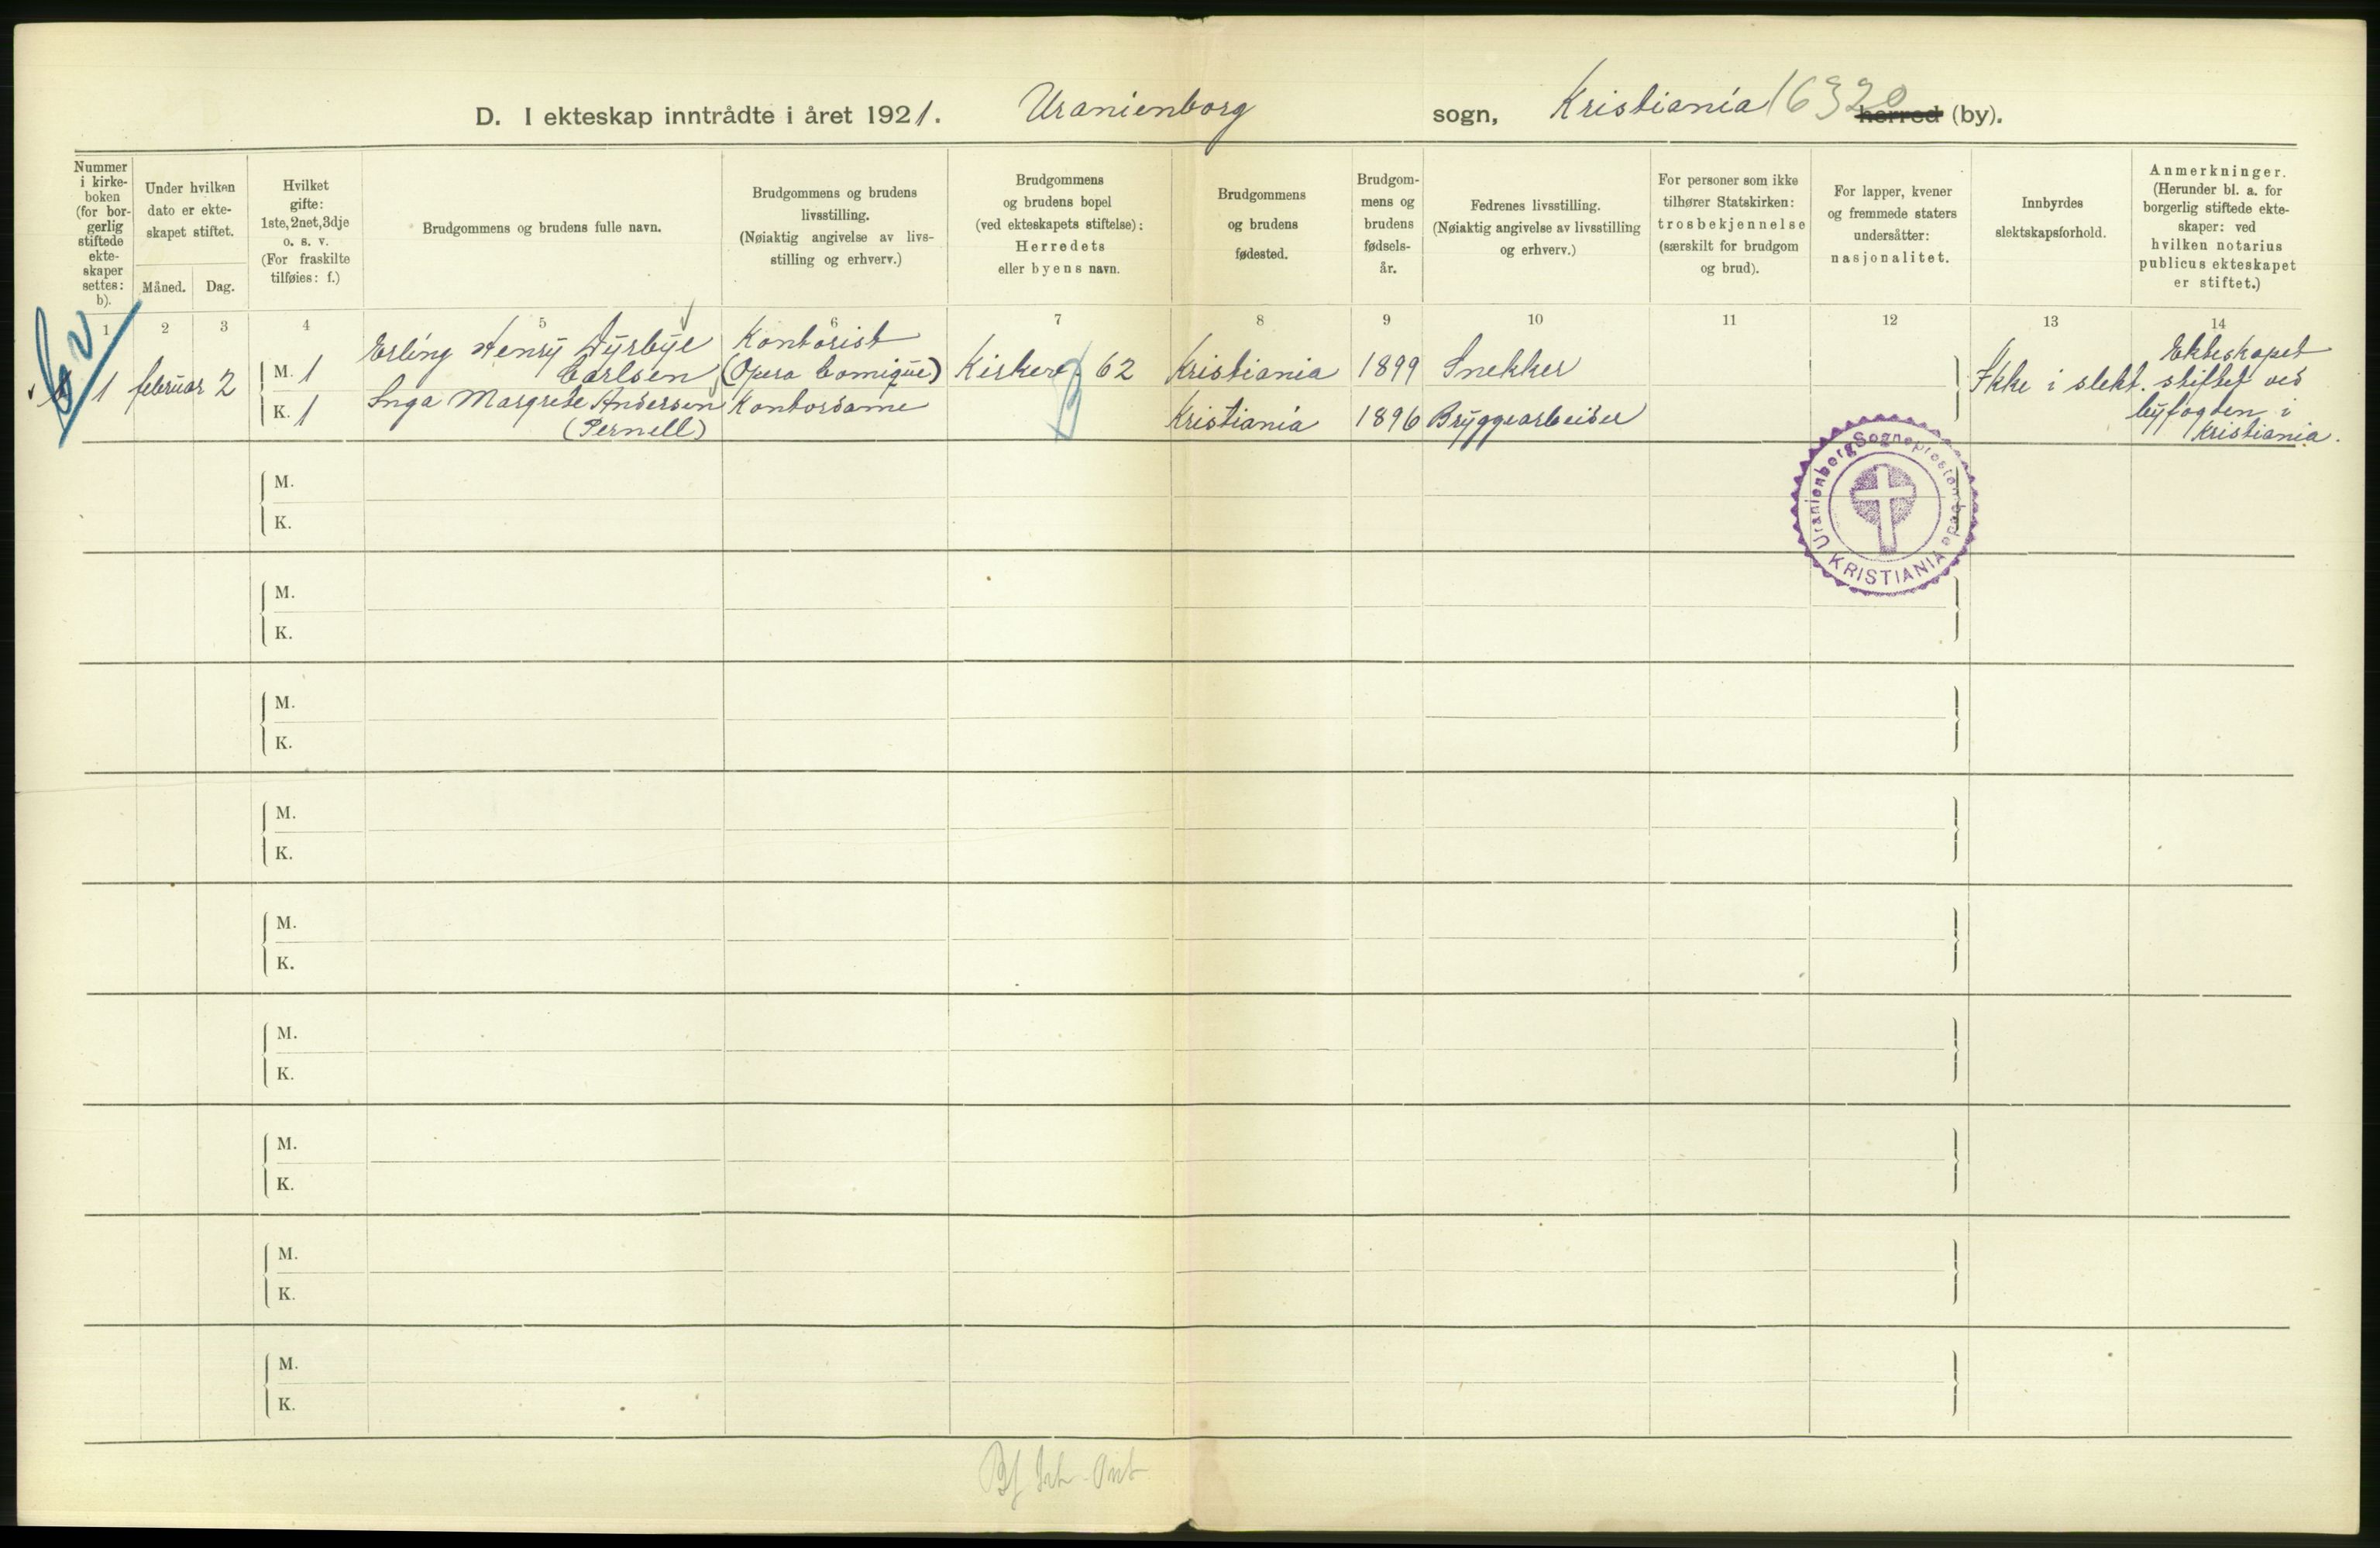 D. I ekteskap inntrådte i året 1921. Uranienborg sogn, Kristiania 16320 herred (by).
Nummer i kirkeboken (for borgerlig stiftede ekteskaper settes: b).
Under hvilken dato er ekteskapet stiftet.
Måned. Dag.
Hvilket gifte: 1ste, 2net, 3dje o. s. v. (For fraskilte tilføies: f.)
Brudgommens og brudens fulle navn.
Brudgommens og brudens livsstilling. (Nøiaktig angivelse av livsstilling og erhverv.)
Brudgommens og brudens bopel (ved ekteskapets stiftelse): Herredets eller byens navn.
Brudgommens og brudens fødested.
Brudgommens og brudens fødselsår.
Fedrenes livsstilling. (Nøiaktig angivelse av livsstilling og erhverv.)
For personer som ikke tilhører Statskirken: trosbekjennelse (særskilt for brudgom og brud).
For lapper, kvener og fremmede staters undersåtter: nasjonalitet.
Innbyrdes slektskapsforhold.
Anmerkninger. (Herunder bl. a. for borgerlig stiftede ekteskaper: ved hvilken notarius publicus ekteskapet er stiftet.)
1 2 3 4 5 6 7 8 9 10 11 12 13 14
1 februar 2
M. 1 Erling Henry Dyrbye Carlsen Kontorist (Opera Comique) Kirkev. 62 Kristiania 1899 Snekker
K. 1 Inga Margrete Andersen (Pernell) Kontordame Kristiania 1896 Bryggearbeider
Ikke i slekt.
Ekteskapet
stiftet ved
byfogden i
Kristiania.
Uranienborg Sogneprestembede
KRISTIANIA
M.
K.
M.
K.
M.
K.
M.
K.
M.
K.
M.
K.
M.
K.
M.
K.
M.
K.